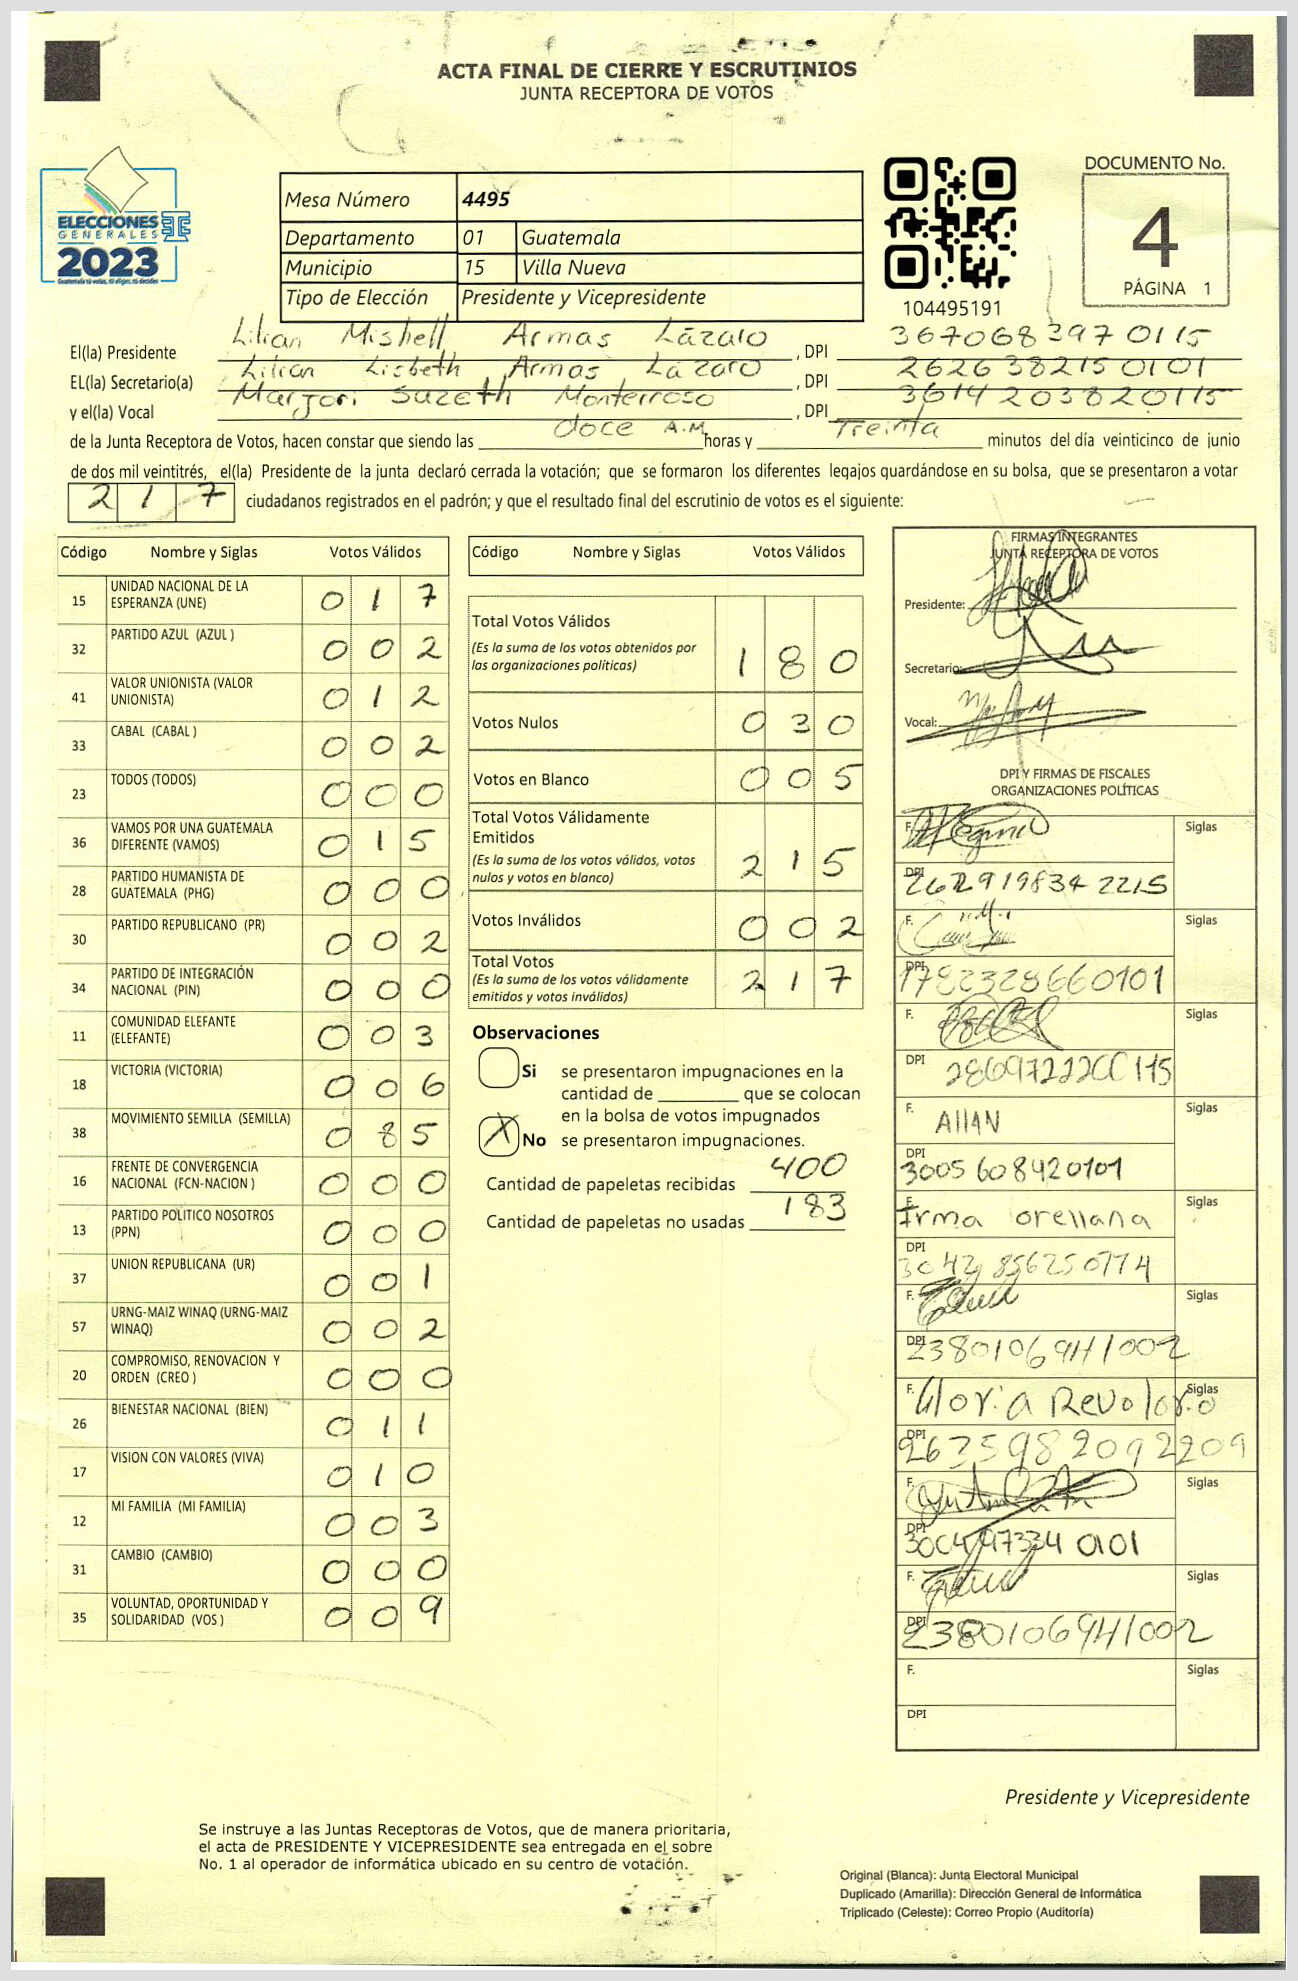 ACTA FINAL DE CIERRE Y ESCRUTINIOS
JUNTA RECEPTORA DE VOTOS
ELECCIONES
GENERALES
2023
Mesa Número 4495
Departamento 01 Guatemala
Municipio 15 Villa Nueva
Tipo de Elección Presidente y Vicepresidente
104495191
DOCUMENTO No.
4
PÁGINA 1
El(la) Presidente Lilian Mishell Armas Lázaro, DPI 3670683970115
EL(la) Secretario(a) Lilian Lisbeth Armas Lázaro, DPI 2626382150101
y el(la) Vocal Marjori Suzeth Monterroso, DPI 3614203820115
de la Junta Receptora de Votos, hacen constar que siendo las doce A.M. horas y Treinta minutos del día veinticinco de junio
de dos mil veintitrés, el(la) Presidente de la junta declaró cerrada la votación; que se formaron los diferentes legajos guardándose en su bolsa, que se presentaron a votar
217 ciudadanos registrados en el padrón; y que el resultado final del escrutinio de votos es el siguiente:
Código Nombre y Siglas Votos Válidos
15 UNIDAD NACIONAL DE LA ESPERANZA (UNE) 017
32 PARTIDO AZUL (AZUL ) 002
41 VALOR UNIONISTA (VALOR UNIONISTA) 012
33 CABAL (CABAL ) 002
23 TODOS (TODOS) 000
36 VAMOS POR UNA GUATEMALA DIFERENTE (VAMOS) 015
28 PARTIDO HUMANISTA DE GUATEMALA (PHG) 000
30 PARTIDO REPUBLICANO (PR) 002
34 PARTIDO DE INTEGRACIÓN NACIONAL (PIN) 000
11 COMUNIDAD ELEFANTE (ELEFANTE) 003
18 VICTORIA (VICTORIA) 006
38 MOVIMIENTO SEMILLA (SEMILLA) 085
16 FRENTE DE CONVERGENCIA NACIONAL (FCN-NACION ) 000
13 PARTIDO POLITICO NOSOTROS (PPN) 000
37 UNION REPUBLICANA (UR) 001
57 URNG-MAIZ WINAQ (URNG-MAIZ WINAQ) 002
20 COMPROMISO, RENOVACION Y ORDEN (CREO ) 000
26 BIENESTAR NACIONAL (BIEN) 011
17 VISION CON VALORES (VIVA) 010
12 MI FAMILIA (MI FAMILIA) 003
31 CAMBIO (CAMBIO) 000
35 VOLUNTAD, OPORTUNIDAD Y SOLIDARIDAD (VOS ) 009
Código Nombre y Siglas Votos Válidos
Total Votos Válidos 180
(Es la suma de los votos obtenidos por
las organizaciones políticas)
Votos Nulos 030
Votos en Blanco 005
Total Votos Válidamente
Emitidos 215
(Es la suma de los votos válidos, votos
nulos y votos en blanco)
Votos Inválidos 002
Total Votos 217
(Es la suma de los votos válidamente
emitidos y votos inválidos)
Observaciones
Si se presentaron impugnaciones en la
cantidad de ________ que se colocan
en la bolsa de votos impugnados
X No se presentaron impugnaciones.
Cantidad de papeletas recibidas 400
Cantidad de papeletas no usadas 183
FIRMAS INTEGRANTES
JUNTA RECEPTORA DE VOTOS
Presidente:
Secretario:
Vocal:
DPI Y FIRMAS DE FISCALES
ORGANIZACIONES POLÍTICAS
F. Siglas
DPI
F. Siglas
DPI 1782328660101
F. Siglas
DPI
F. Allan Siglas
DPI 3005608420101
F. Irma orellana Siglas
DPI 3042856250774
F. Siglas
DPI 2380106941002
F. Gloria Revolorio Siglas
DPI 2635982092209
F. Siglas
DPI
F. Siglas
DPI 2380106941002
F. Siglas
DPI
Presidente y Vicepresidente
Se instruye a las Juntas Receptoras de Votos, que de manera prioritaria,
el acta de PRESIDENTE Y VICEPRESIDENTE sea entregada en el sobre
No. 1 al operador de informática ubicado en su centro de votación.
Original (Blanca): Junta Electoral Municipal
Duplicado (Amarilla): Dirección General de Informática
Triplicado (Celeste): Correo Propio (Auditoría)